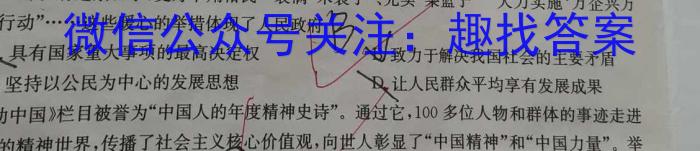 行动”……这些暖心的举措体现了人民政府
微信公众号关注：趣找答案
具有国家重大事项的最高决定权
致力于解决我国社会的主要矛盾
坚持以公民为中心的发展思想
D.让人民群众平均享有发展成果
动中国》栏目被誉为“中国人的年度精神史诗”。通过它，100多位人物和群体的事迹走进
的精神世界，传播了社会主义核心价值观，向世人彰显了“中国精神”和“中国力量”。举